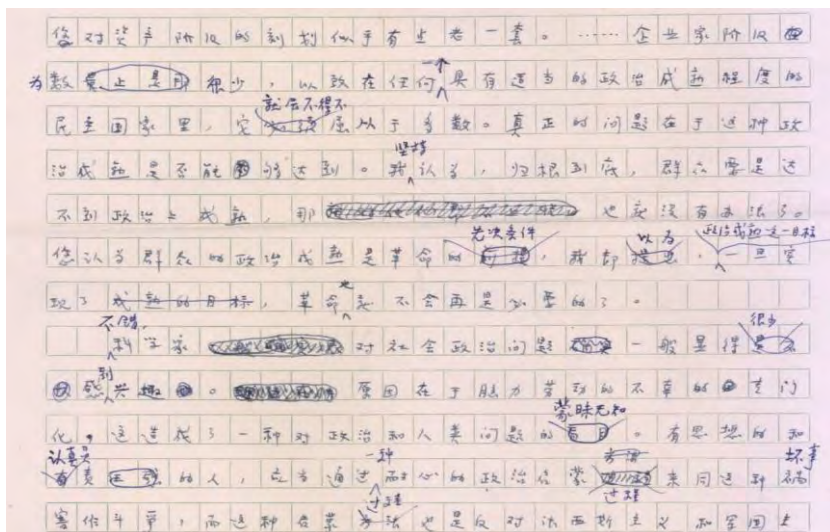 您对资产阶级的刻划似乎有点老一套。……企业家阶级在
为数量上是很少,以致在任何一个具有适当的政治成熟程度的
民主国家里,它就会不得不屈从于多数。真正的问题在于这种政
治成熟是否能够达到。我坚持认为,归根到底,群众要是达
不到政治上成熟,那也就没有办法了。
您认为群众的政治成熟是革命的先决条件,我却以为,政治成熟这一目标一旦实
现了,革命也就不会再是必要的了。
不错,科学家对社会政治问题一般显得很少
感到兴趣。原因在于脑力劳动的不幸的专门
化,这造成了一种对政治和人类问题的蒙昧无知。有思想的和
认真负责的人,应当通过一种耐心的政治启蒙过程来同这种祸
害作斗争,而这种启蒙过程也是反对法西斯主义和军国主